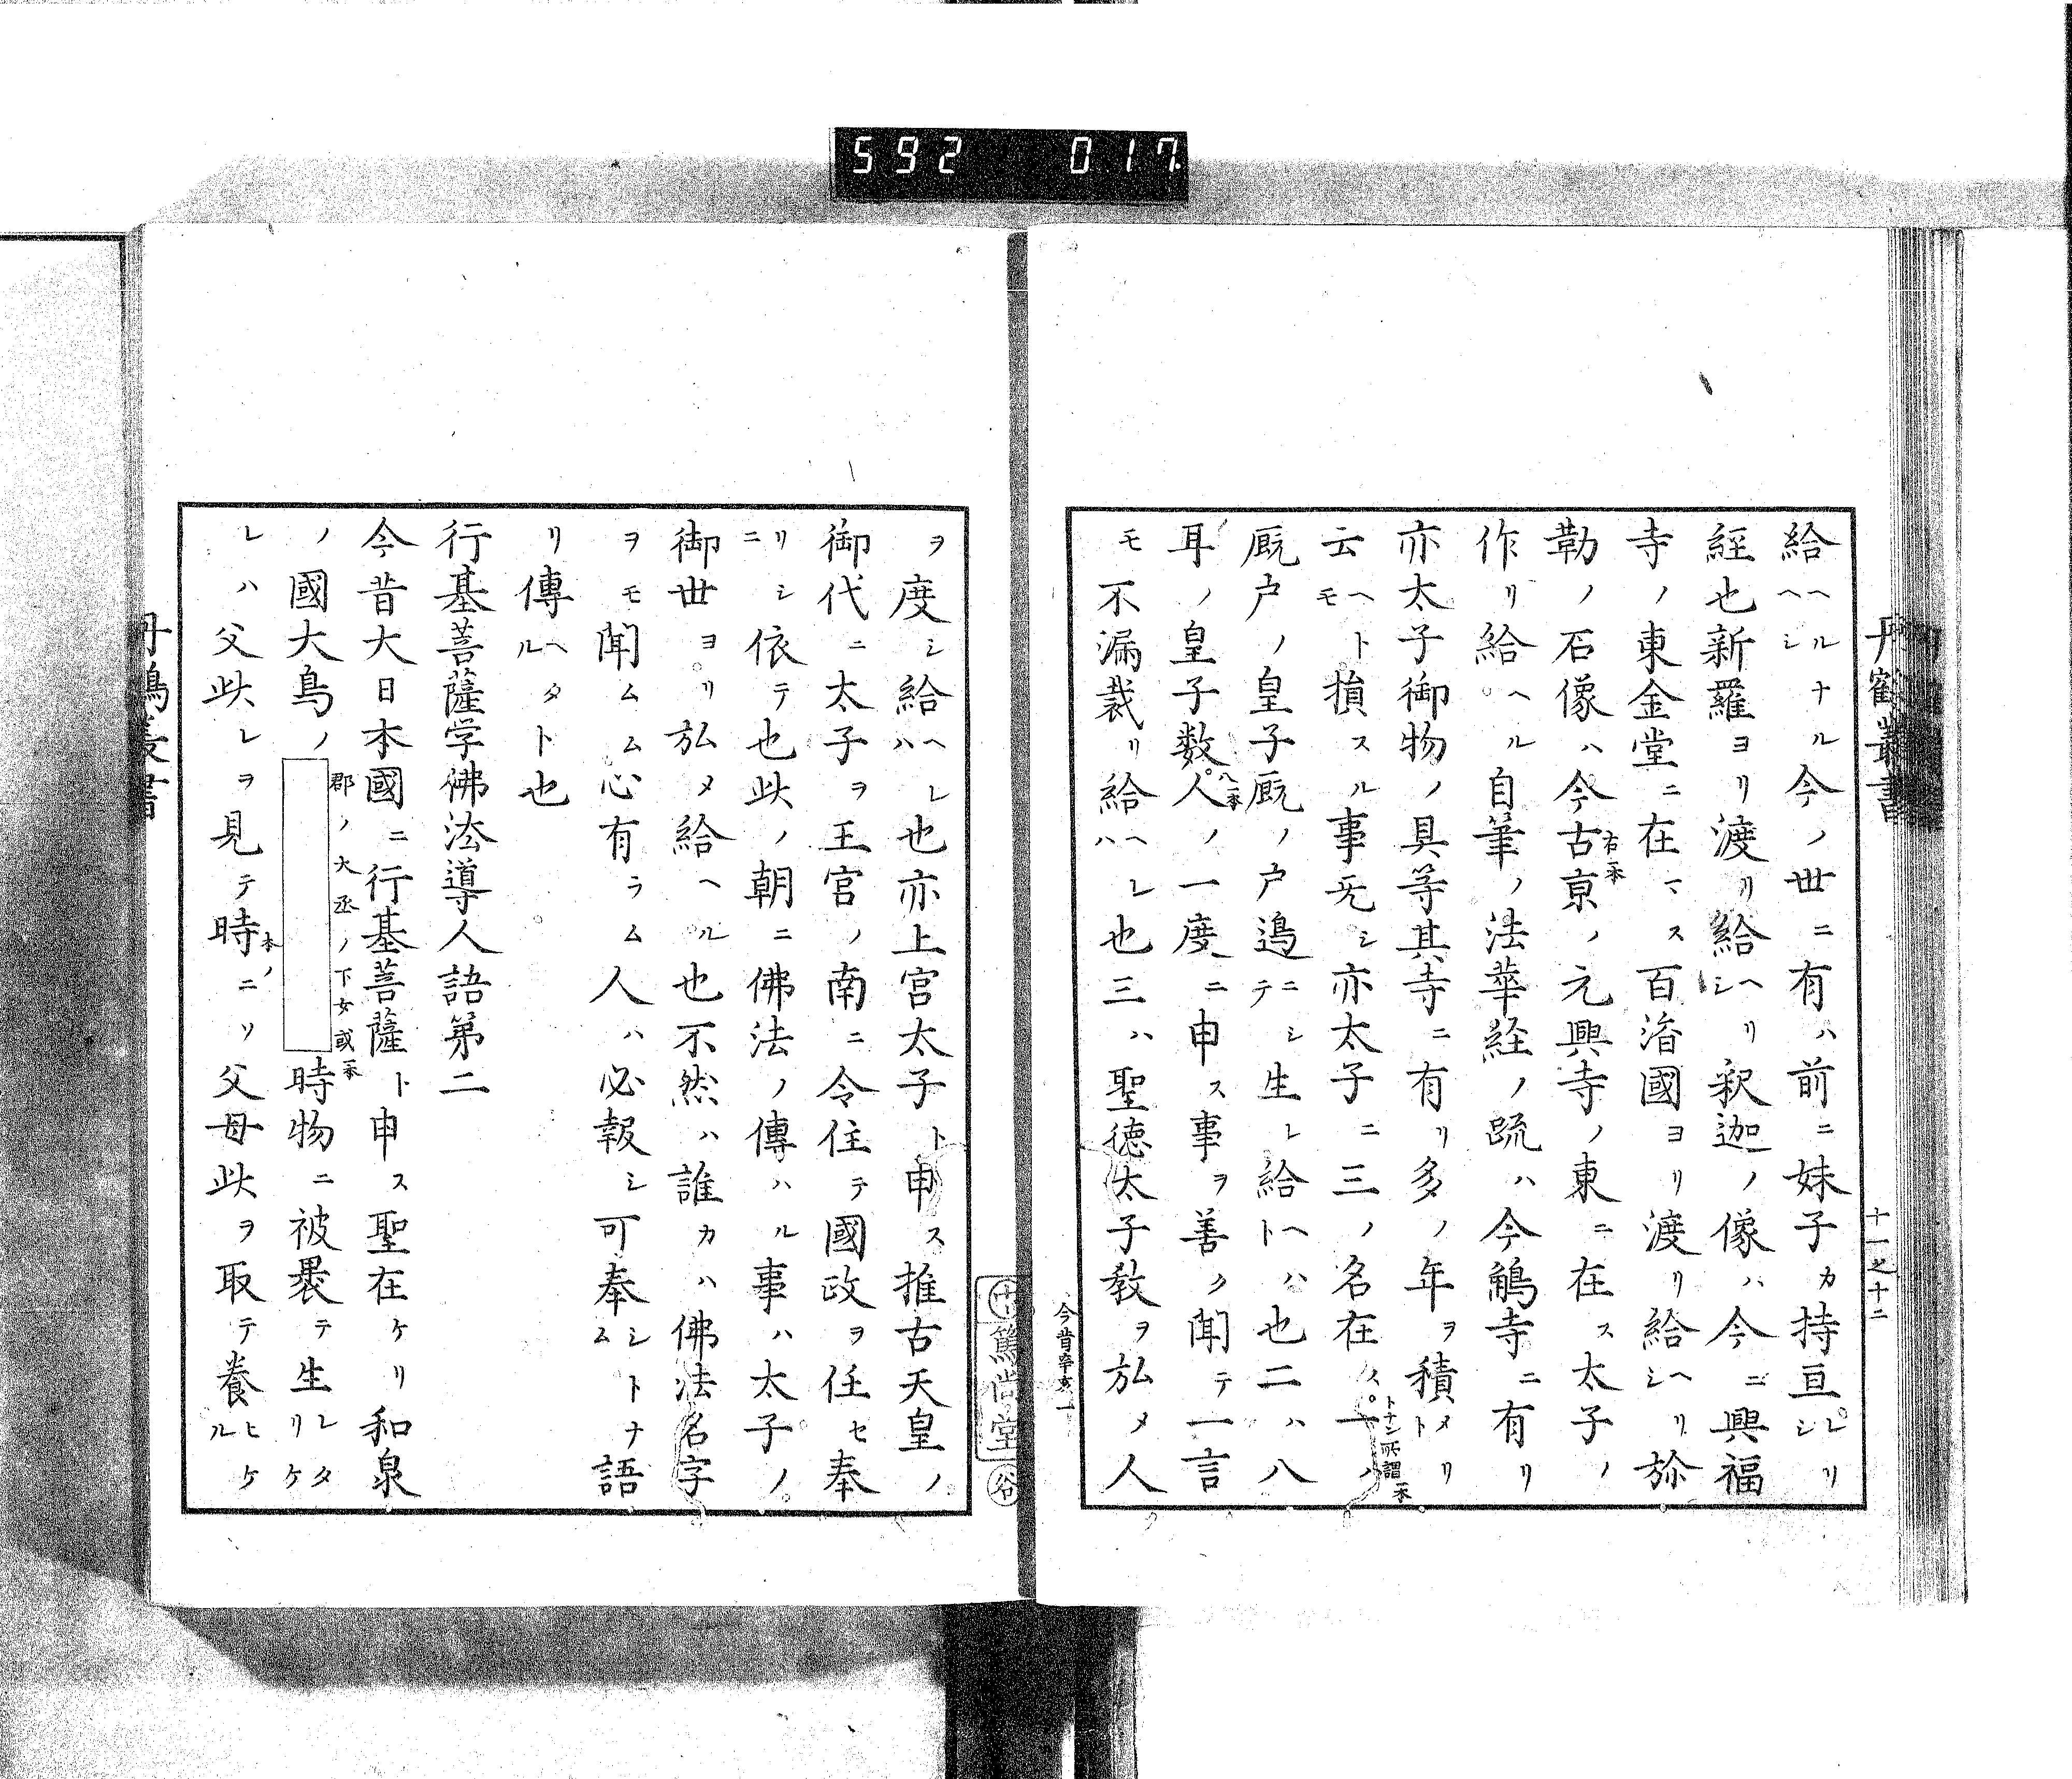 592 017
丹鶴叢書
十一之十二
給ヘシヘルナル今ノ世ニ有ハ前ニ妹子カ持亘シレリ
経也新羅ヨリ渡リ給シヘリ釈迦ノ像ハ今ニ興福
寺ノ東金堂ニ在マス百済國ヨリ渡リ給シヘリ弥
勒ノ石像ハ今古京ノ元興寺ノ東ニ在ス太子ノ
右一本
作リ給ヘル自筆ノ法華経ノ疏ハ今鵤寺ニ有リ
亦太子御物ノ具等其寺ニ有リ多ノ年ヲ積トメリ
云モヘト損スル事旡シ亦太子ニ三ノ名在ス一ハ
トナン所謂一本
厩戸ノ皇子厩ノ戸邉テニシ生レ給トヘハ也二ハ八
耳ノ皇子数人ノ一度ニ申ス事ヲ善ク聞テ一言
八一本
モ不漏裁リ給ハヘレ也三ハ聖徳太子教ヲ弘メ人
今昔辛亥一
篤尚堂
ヲ度シ給ハヘレ也亦上宮太子ト申ス推古天皇ノ
御代ニ太子ヲ王宮ノ南ニ令住テ國政ヲ任セ奉
ニリシ依テ也此ノ朝ニ佛法ノ傳ハル事ハ太子ノ
御世ヨリ弘メ給ヘル也不然ハ誰カハ佛法名字
ヲモ聞ムム心有ラム人ハ必報シ可奉ムシトナ語
リ傳ルヘタト也
行基菩薩学佛法導人語第二
今昔大日本國ニ行基菩薩ト申ス聖在ケリ和泉
ノ國大鳥ノ 時物ニ被褁テ生リケレタ
郡ノ大丞ノ下女或一本
レハ父此レヲ見テ時ニリ父母此ヲ取テ養ルヒケ
本ノ
丹鶴叢書